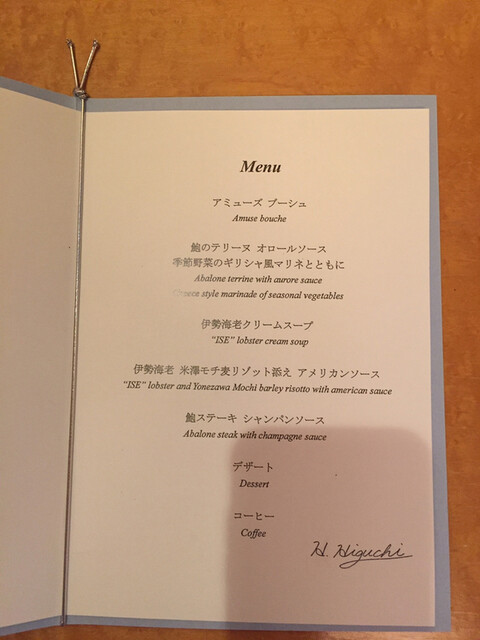 Menu
アミューズ ブーシュ
Amuse bouche
鮑のテリーヌ オロールソース
季節野菜のギリシャ風マリネとともに
Abalone terrine with aurore sauce
Greece style marinade of seasonal vegetables
伊勢海老クリームスープ
"ISE" lobster cream soup
伊勢海老 米澤モチ麦リゾット添え アメリカンソース
"ISE" lobster and Yonezawa Mochi barley risotto with american sauce
鮑ステーキ シャンパンソース
Abalone steak with champagne sauce
デザート
Dessert
コーヒー
Coffee
H. Higuchi